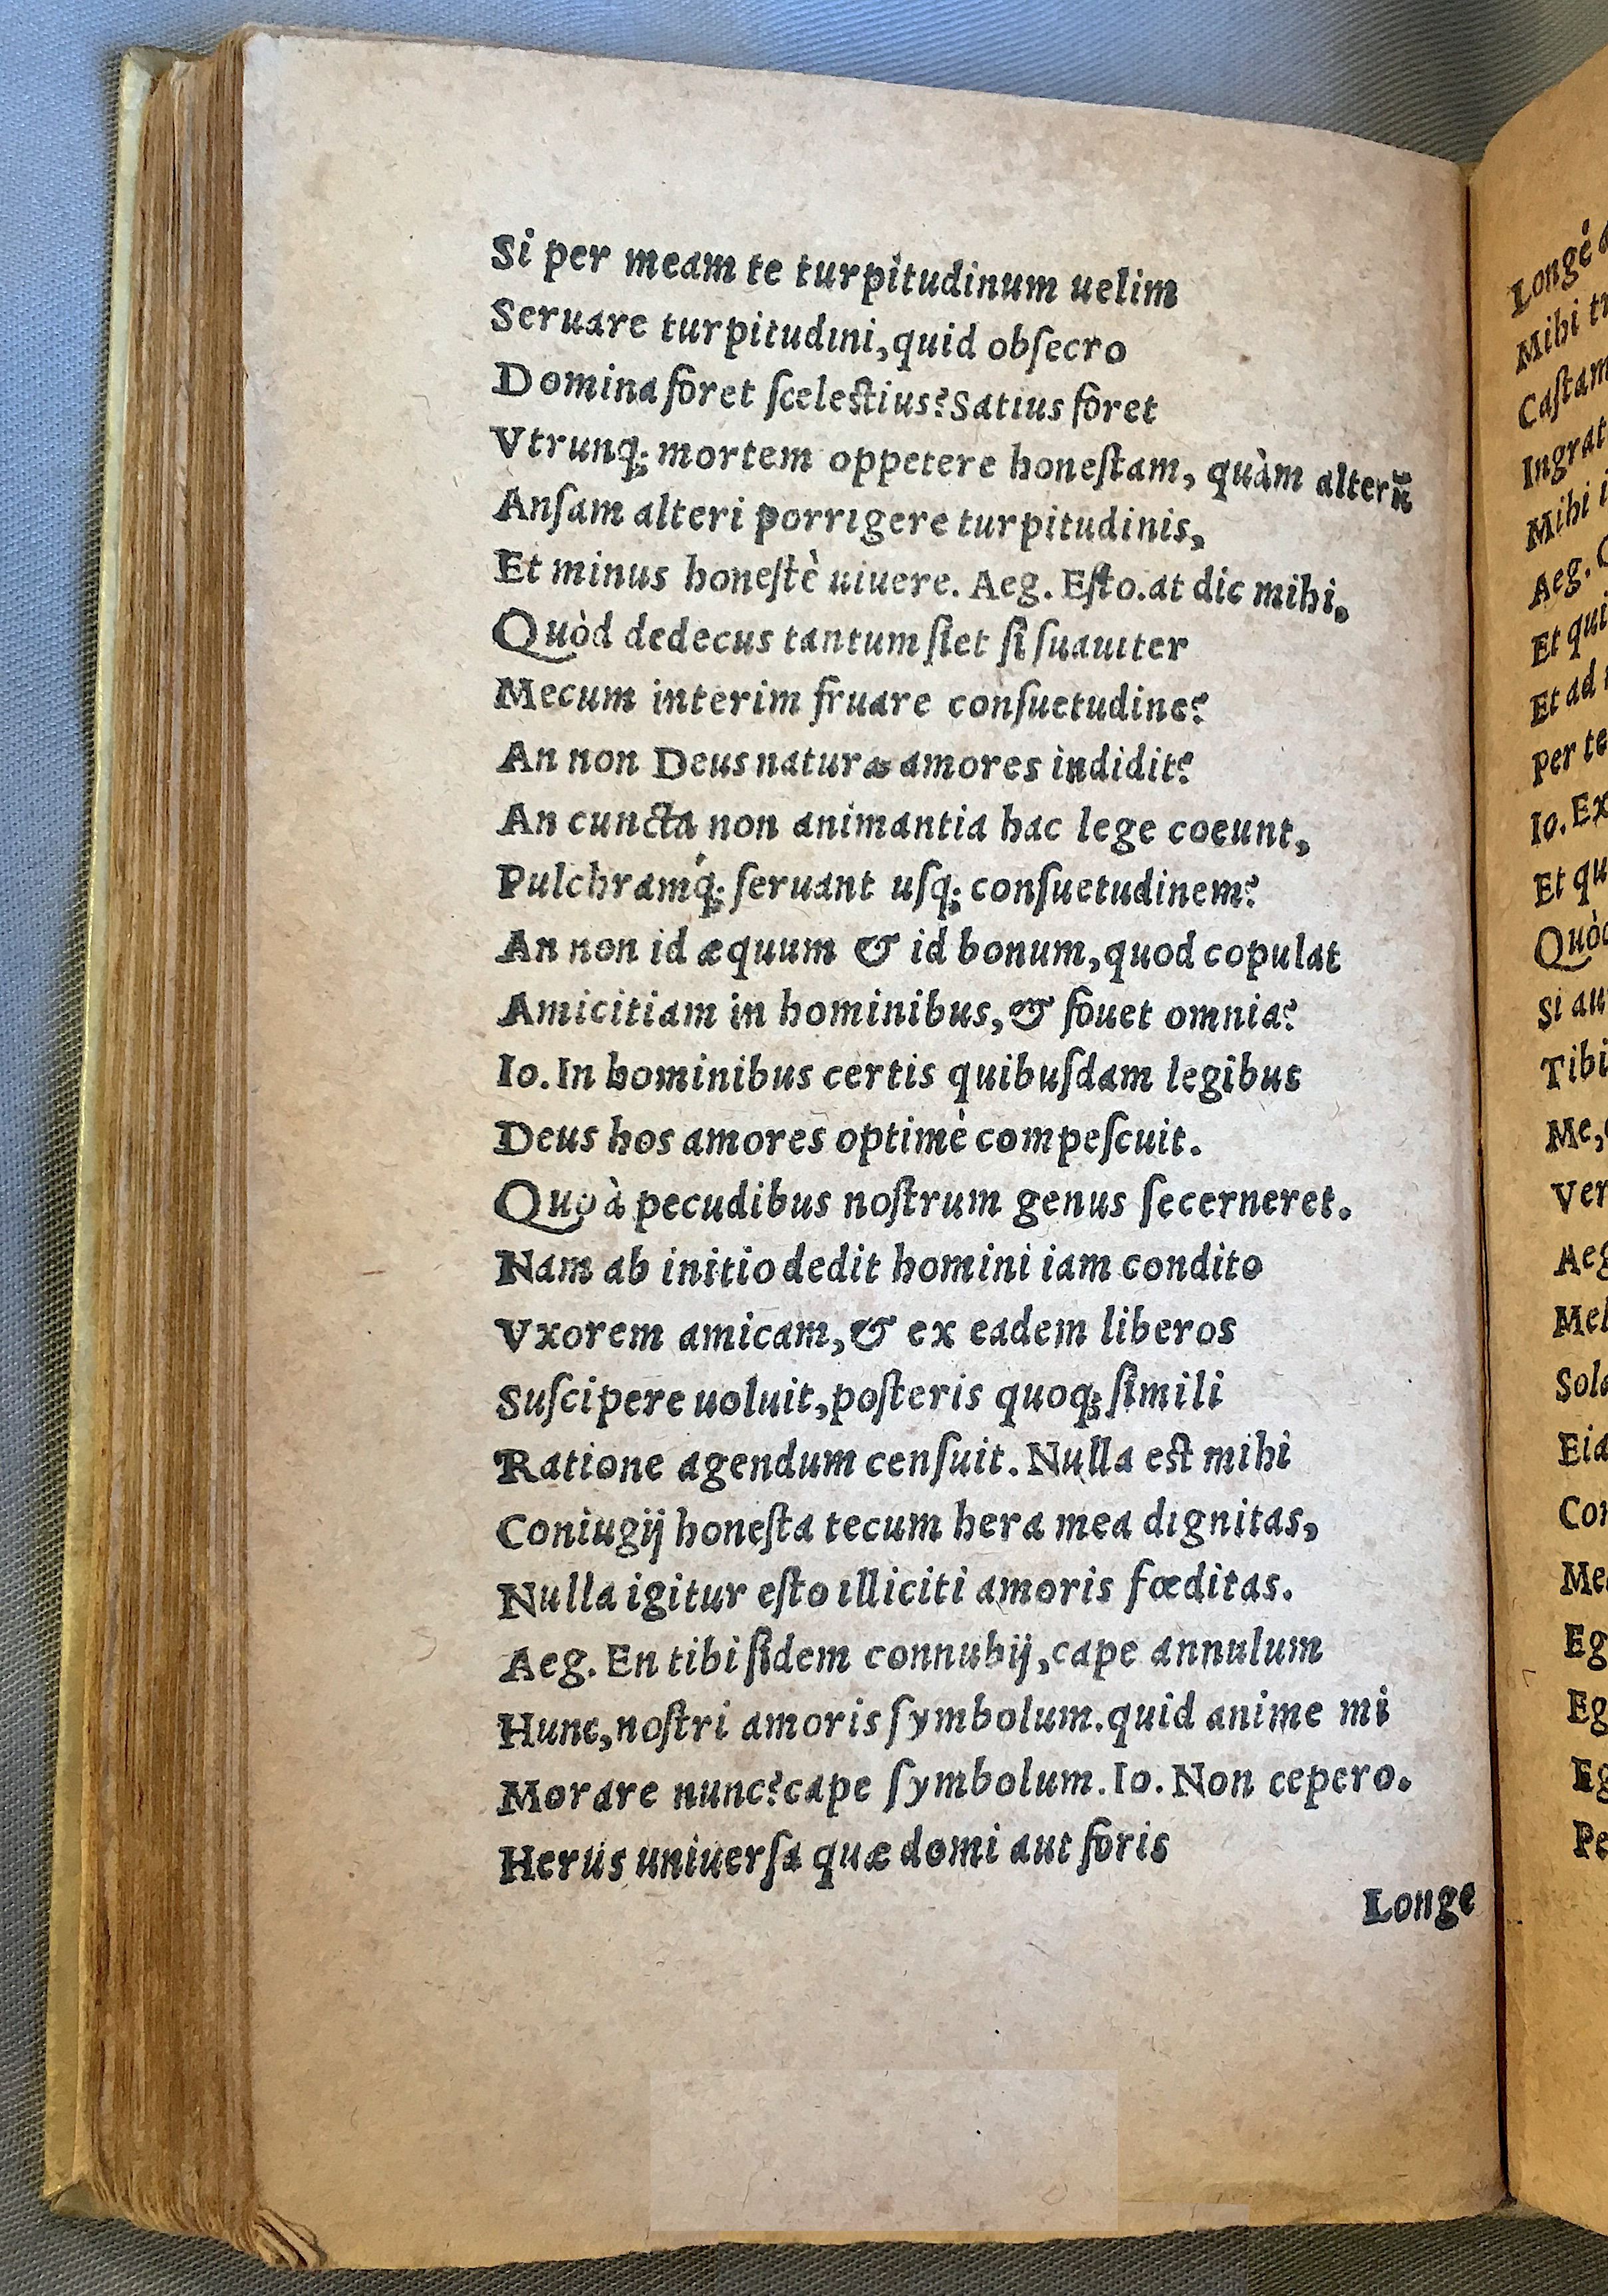 Si per meam te turpitudinum uelim
Seruare turpitudini, quid obſecro
Domina foret ſceleſtius? Satius foret
Vtrunq; mortem oppetere honeſtam, quàm alterũ
Anſam alteri porrigere turpitudinis,
Et minus honeſtè uiuere. Aeg. Eſto. at dic mihi,
Quòd dedecus tantum ſiet ſi ſuauiter
Mecum interim fruare conſuetudine?
An non Deus naturæ amores indidit?
An cuncta non animantia hac lege coeunt,
Pulchramq́; ſeruant uſq; conſuetudinem?
An non id æquum & id bonum, quod copulat
Amicitiam in hominibus, & fouet omnia?
Io. In hominibus certis quibuſdam legibus
Deus hos amores optimè compeſcuit.
Quo à pecudibus noſtrum genus ſecerneret.
Nam ab initio dedit homini iam condito
Vxorem amicam, & ex eadem liberos
Suſcipere uoluit, poſteris quoq; ſimili
Ratione agendum cenſuit. Nulla eſt mihi
Coniugij honeſta tecum hera mea dignitas,
Nulla igitur eſto illiciti amoris fœditas.
Aeg. En tibi fidem connubij, cape annulum
Hunc, noſtri amoris ſymbolum. quid anime mi
Morare nunc? cape ſymbolum. Io. Non cepero.
Herus uniuerſa quæ domi aut foris
Longe
Longè
Mihi
Caſtam
Ingrat
Mihi
Aeg.
Et qui
Et ad
Per te
Io. Ex
Et qu
Quò
Si au
Tibi
Me,
Ver
Aeg
Mel
Sol
Eia
Con
Me
Eg
Eg
Eg
Pe